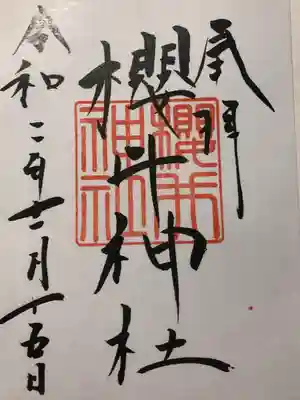 奉拝
櫻井神社
令和二年十二月十五日
櫻井
神社